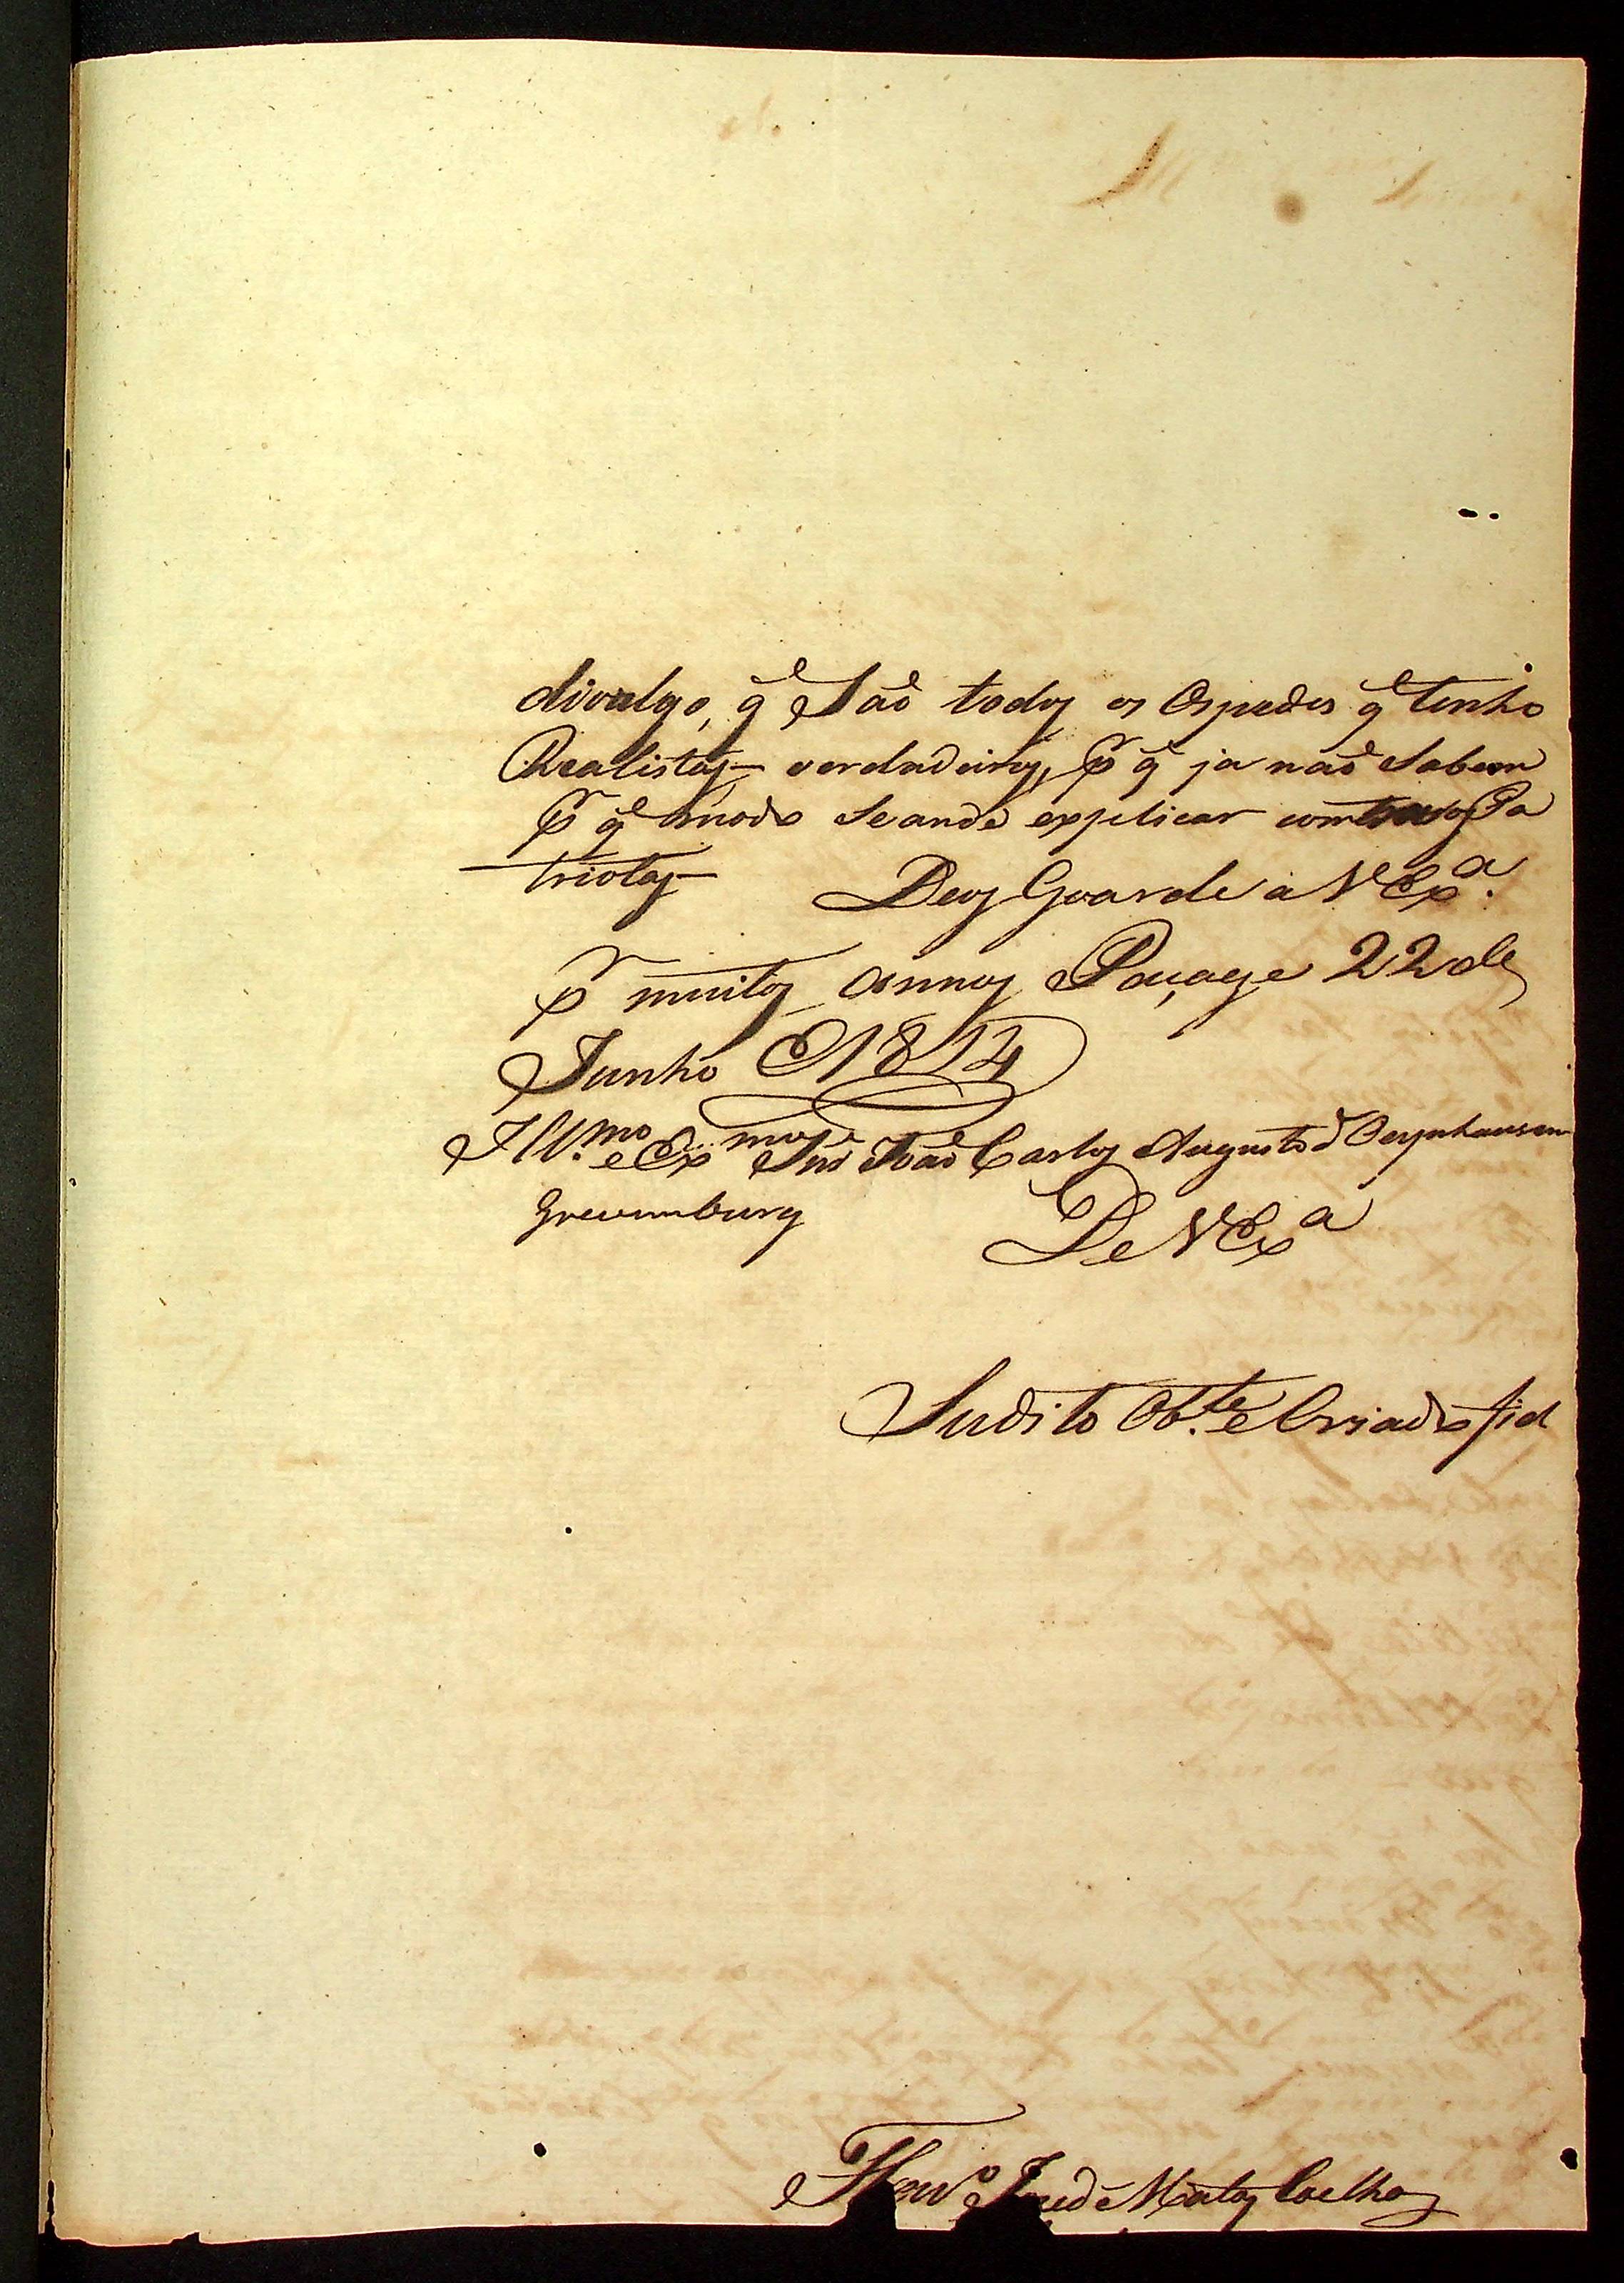 divulgo, q̃ Saõ todos os Ospedes q̃ tenho
Realistas verdadeiros, P̃ q̃ ja naõ Sabem
P̃ q̃ modo Seande explicar contra os Pa
triotas Deos Goarde a VEx.ª
P̃ muitos Annos Paçage 22 de
Junho 1814
Ill.mo e Ex.mo Snr Joaõ Carlos Augusto d'Oeynhausen
Grevemburg
De VExª
Sudito Ob.te e Criado fiel
José de Mattos Coelho